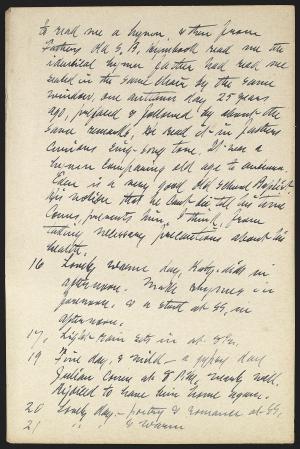 to read me a hymn, & then from
Fathers Old S. B. hymnbook read me the
identical hymn father had read me
seated in the same chair by the same
window, one autumn day, 25 years
ago, prefaced & followed by about the
same remarks, he read it in fathers
curious sing-song tone. It was a
hymn comparing old age to autumn.
Eden is a very good Old School Baptist
his notion that he cant die till his time
comes, prevents him, I think, from
taking necessary precautions about his
health.
16 Lovely warm day, Katy-dids in
afternoon. Make rhymes in
forenoon. & a start at SS, in
afternoon.
17, Light rain sets in at 5 P.
19 Fine day, & mild — a gypsy day
Julian comes at 8 P.M, nearly well.
Rejoiced to have him home again.
20 Lovely day, — poetry & romance at SS,
21 " " & warm